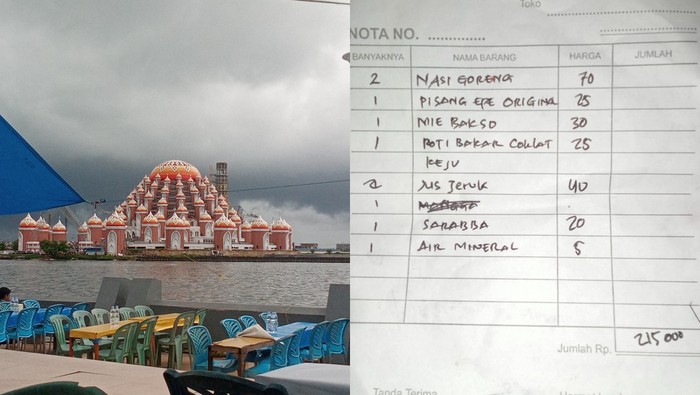 Toko
NOTA NO.
BANYAKNYA NAMA BARANG HARGA JUMLAH
2 NASI GORENG 70
1 PISANG EPE ORIGINA 25
1 MIE BAKSO 30
1 ROTI BAKAR COKLAT 25
KEJU
2 JUS JERUK 40
1
1 SARABBA 20
1 AIR MINERAL 5
Jumlah Rp. 215000
Tanda Terima